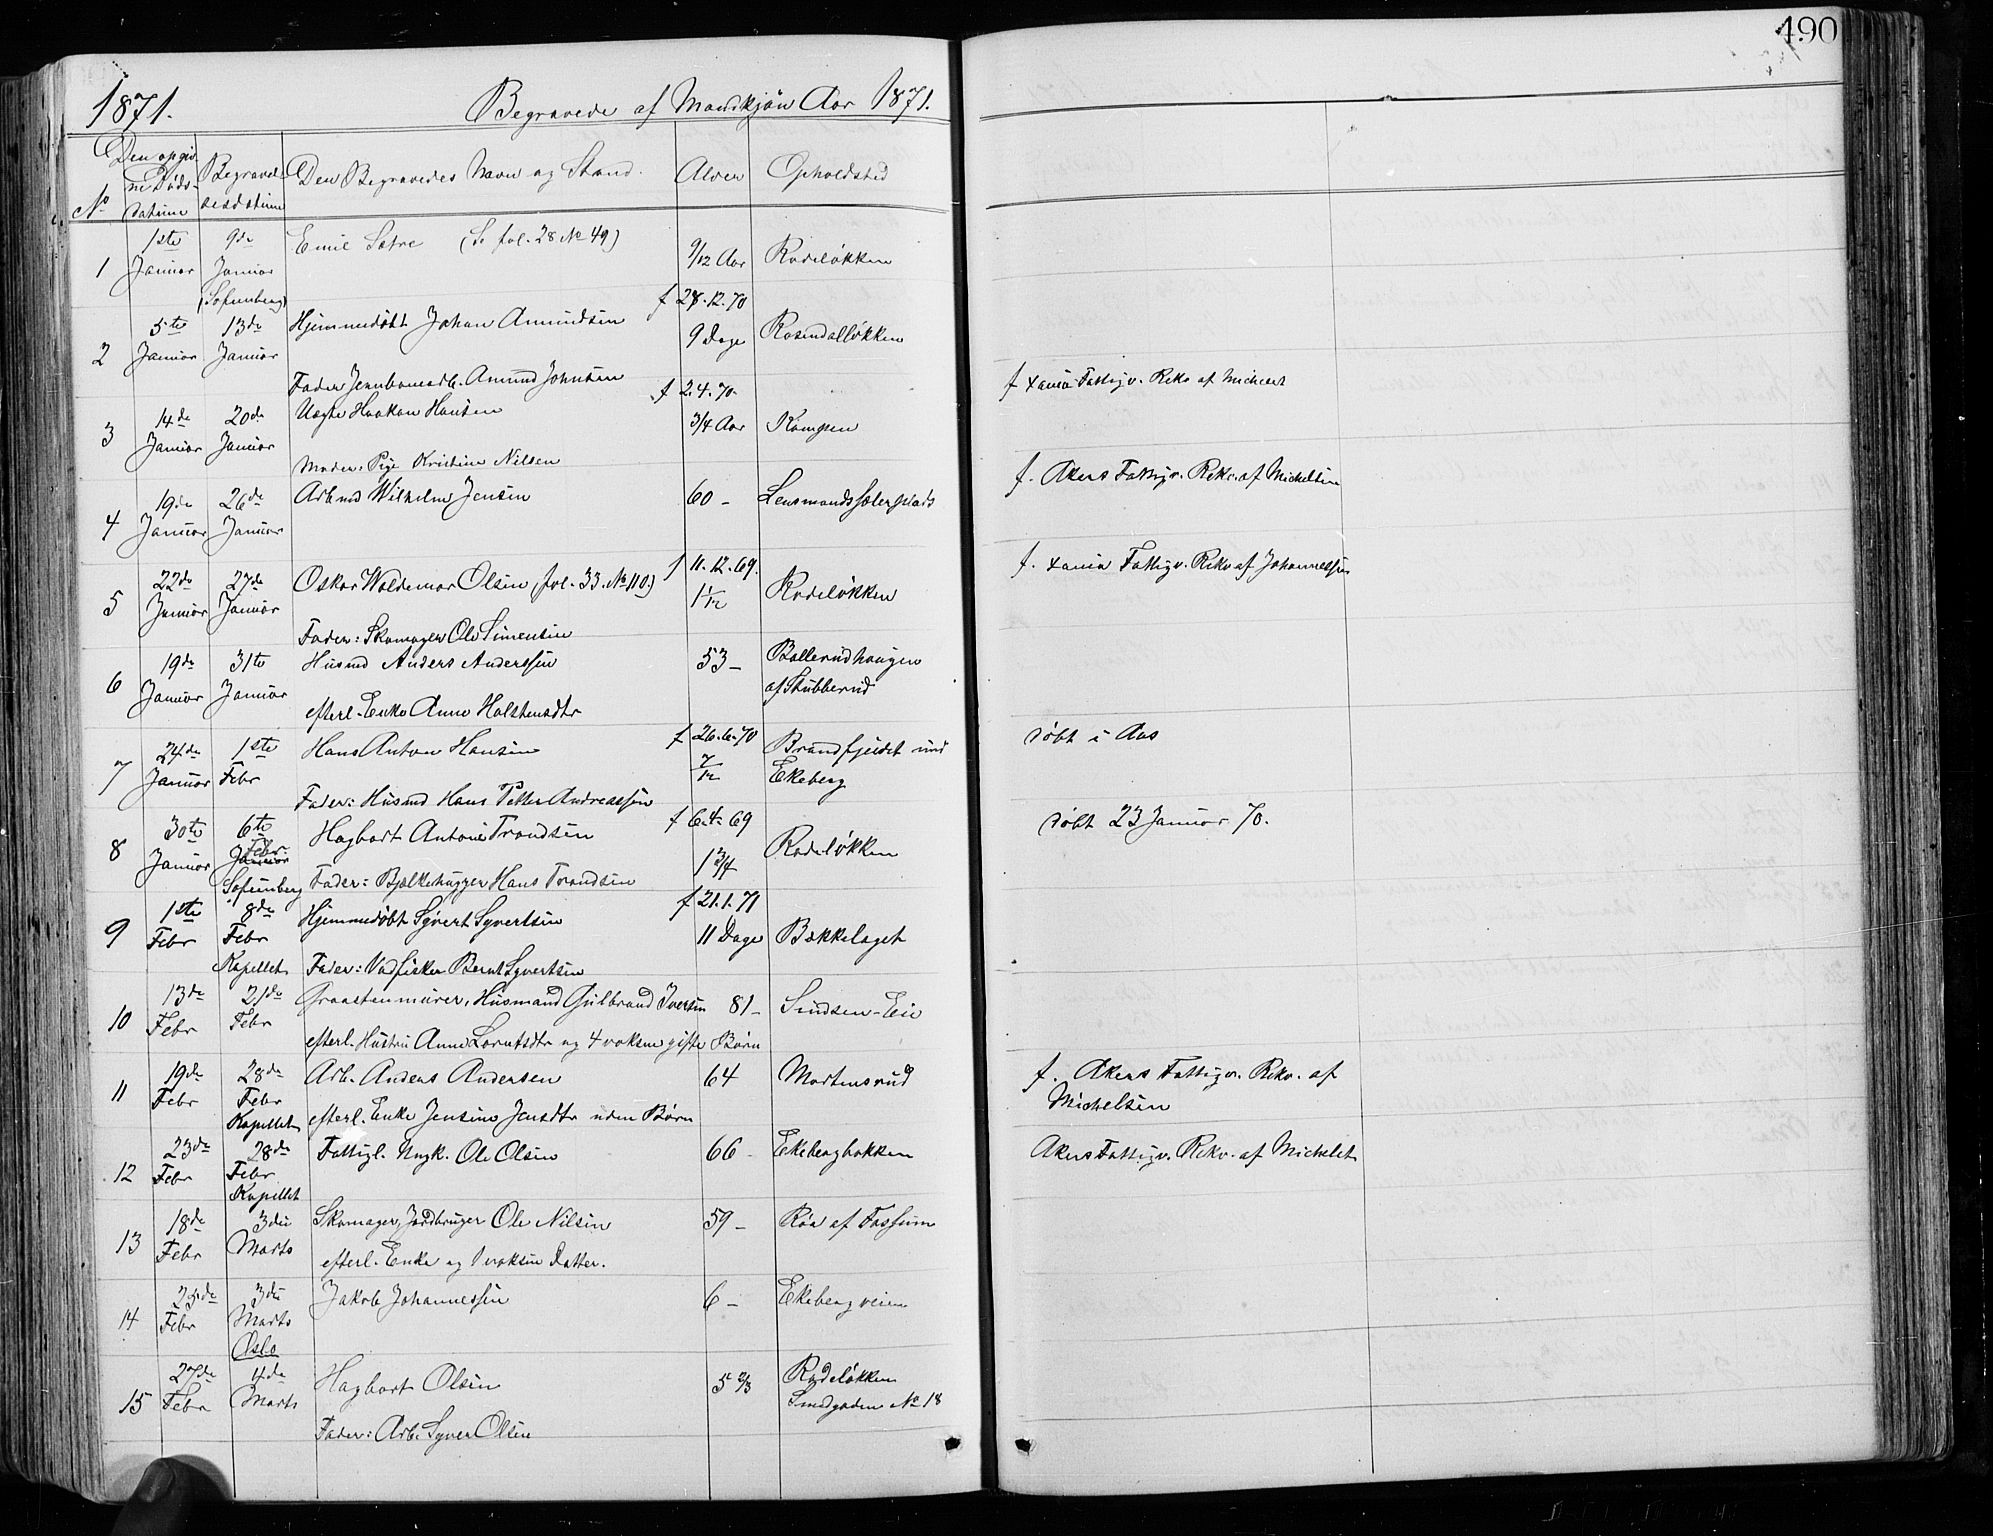 490
1871. Begravede af Mandkjøn Aar 1871.
No Den opgivne Dødsdatum Begravelsesdatum Den Begravedes Navn og Stand. Alder Opholdsted
1 1ste Januar 9de Januar (Sofienberg) Emil Sætre (Se fol. 28 No 49) 9/12 Aar Rodeløkken
2 5te Januar 13de Januar Hjemmedøbt Johan Amundsen f 28.12.70 9 Dage Rosendalløkken
Fader Jernbanearb. Amund Johnsen
3 14de Januar 20de Januar Uægte Haakon Hansen f 2.4.70 3/4 Aar Kampen f Xania Fattigv. Rekv af Michelet
Moder: Pige Kristine Nilsen
4 19de Januar 26de Januar Arbmd Wilhelm Jensen 60 - Lensmandssæterplads f. Akers Fattigv. Rekv. af Michelsen
5 22de Januar 27de Januar Oskar Waldemar Olsen fol. 33. No 110) f 11.12.69. 1 1/12 Rodeløkken f. Xania Fattigv. Rekv af Johannessen
Fader: Skomager Ole Simensen
6 19de Januar 31te Januar Husmd Anders Anderssen 53 - Ballerudhaugen af Stubberud
efterl. Enke Anne Halstensdtr
7 24de Januar 1ste Febr Hans Anton Hansen f 26.6.70 7/12 Brandfjeldet und Ekeberg døbt i Aas
Fader: Husmd Hans Petter Andreassen
8 30te Januar 6te Januar Febr Sofienberg Hagbart Anton Trondsen f 6.4.69 1 3/4 Rodeløkken døbt 23 Januar 70.
Fader: Bjælkehugger Hans Trondsen
9 1ste Febr 8de Febr Kapellet Hjemmedøbt Syvert Syvertsen f 21.1.71 11 Dage Bækkelaget
Fader: Vadfisker Bernt Syvertsen
10 13de Febr 21de Febr Graastensmurer, Husmand Gulbrand Iversen 81 - Sindsen-Eie
efterl. Hustru Anne Larntsdtr og 4 voksne gifte Børn
11 19de Febr 28de Febr Kapellet Arb. Anders Andersen 64 Mortensrud f. Akers Fattigv. Rekv. af
Michelsen
efterl. Enke Jensine Jensdtr uden Børn
12 23de Febr 28de Febr Kapellet Fattigl. Ungk. Ole Olsen 66 - Ekebergbakken Akers Fattigv. Rekv. af Michelet
13 18de Febr 3die Marts Skomager, Jordbruger Ole Nilsen 59 - Røa af Fossum
efterl. Enke og 1 voksen Datter.
14 25de Febr 3die Marts Oslo Jakob Johannessen 6 - Ekebergveien
15 27de Febr 4de Marts Hagbart Olsen 5 2/3 Rodeløkken
Smedgaden No 18
Fader: Arb. Syver Olsen